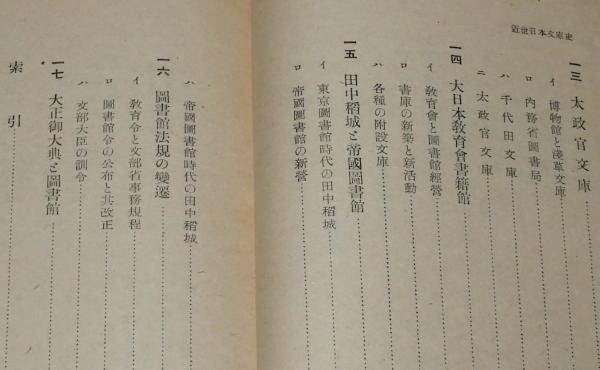 近世日本文庫史
一三 太政官文庫
イ 博物館と淺草文庫
ロ 内務省圖書局
ハ 千代田文庫
ニ 太政官文庫
一四 大日本教育會書籍館
イ 教育會と圖書館經營
ロ 書庫の新築と新活動
ハ 各種の附設文庫
一五 田中稻城と帝國圖書館
イ 東京圖書館時代の田中稻城
ロ 帝國圖書館の新營
ハ 帝國圖書館時代の田中稻城
一六 圖書館法規の變遷
イ 教育令と文部省事務規程
ロ 圖書館令の公布と其改正
ハ 文部大臣の訓令
一七 大正御大典と圖書館
索引